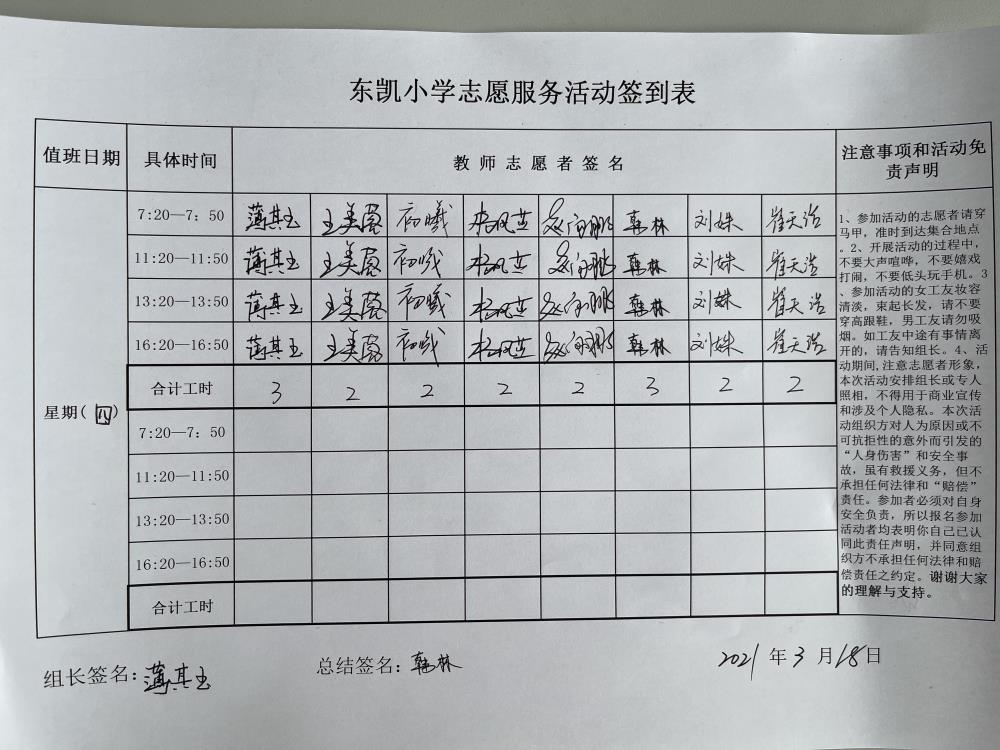 东凯小学志愿服务活动签到表
值班日期 具体时间 教师志愿者签名 注意事项和活动免责声明
7:20—7：50 薄其玉 王美 初曦 韩林 刘姝 崔天浩
11:20—11:50 薄其玉 王美 初曦 韩林 刘姝 崔天浩
13:20—13:50 薄其玉 王美 初曦 韩林 刘姝 崔天浩
16:20—16:50 薄其玉 王美 初曦 韩林 刘姝 崔天浩
合计工时 3 2 2 2 2 3 2 2
星期(四)
7:20—7：50
11:20—11:50
13:20—13:50
16:20—16:50
合计工时
1、参加活动的志愿者请穿
马甲，准时到达集合地点
。2、开展活动的过程中，
不要大声喧哗，不要嬉戏
打闹，不要低头玩手机。3
、参加活动的女工友妆容
清淡，束起长发，请不要
穿高跟鞋，男工友请勿吸
烟。如工友中途有事情离
开的，请告知组长。4、活
动期间,注意志愿者形象，
本次活动安排组长或专人
照相，不得用于商业宣传
和涉及个人隐私。本次活
动组织方对人为原因或不
可抗拒性的意外而引发的
“人身伤害”和安全事
故，虽有救援义务，但不
承担任何法律和“赔偿”
责任。参加者必须对自身
安全负责，所以报名参加
活动者均表明你自己已认
同此责任声明，并同意组
织方不承担任何法律和赔
偿责任之约定。谢谢大家
的理解与支持。
组长签名：薄其玉 总结签名：韩林 2021 年 3 月 18 日